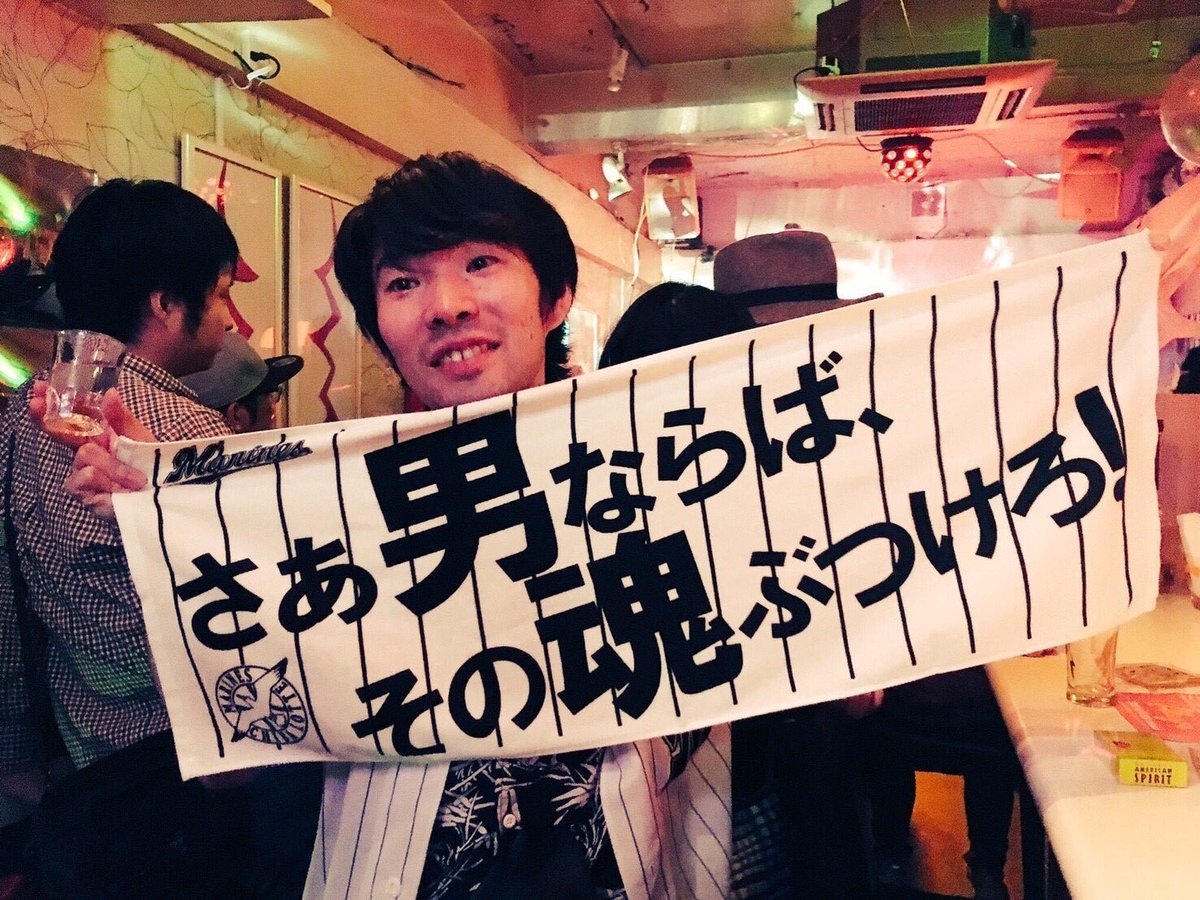 Marines
さあ男ならば、
その魂ぶつけろ!
MARINES
AMERICAN
SPIRIT